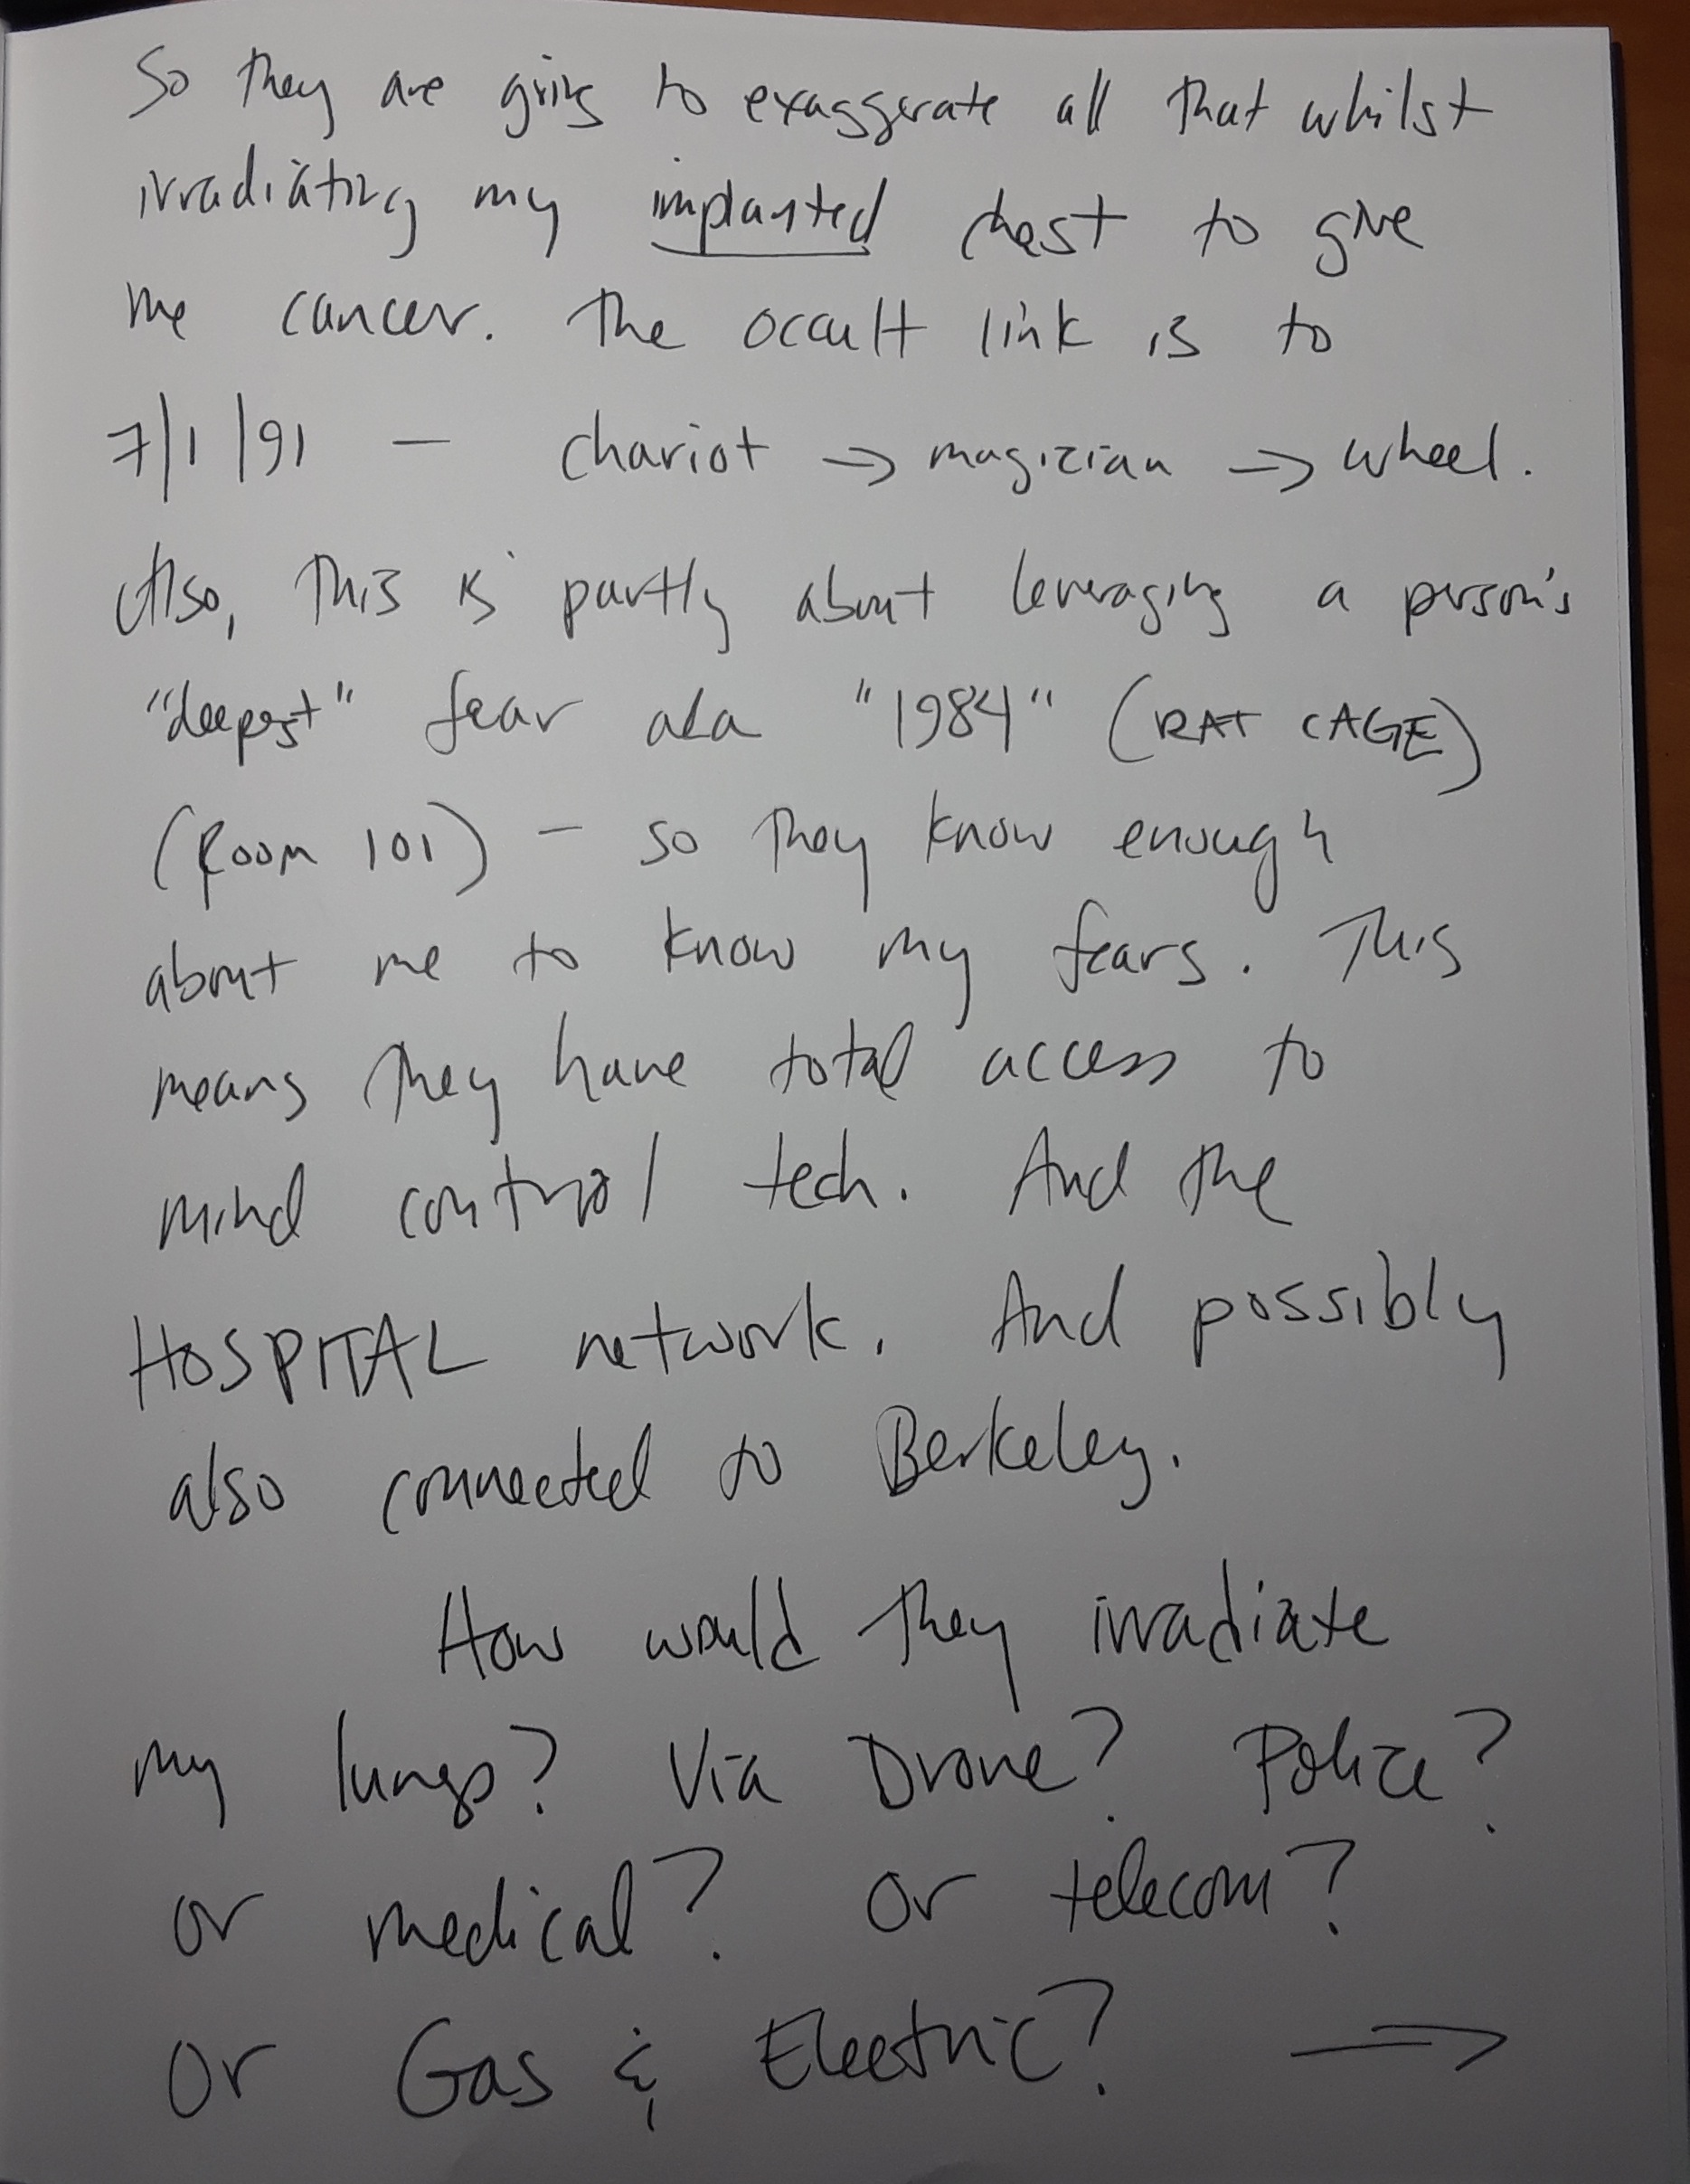 So they are going to exaggerate all that whilst
irradiating my implanted chest to give
me cancer. The occult link is to
7/1/91 — chariot → magician → wheel.
Also, this is partly about leveraging a person's
"deepest" fear ala "1984" (RAT CAGE)
(Room 101) — so they know enough
about me to know my fears. This
means they have total access to
mind control tech. And the
HOSPITAL network. And possibly
also connected to Berkeley.
How would they irradiate
my lungs? Via Drone? Police?
or medical? or telecom?
or Gas & Electric? →